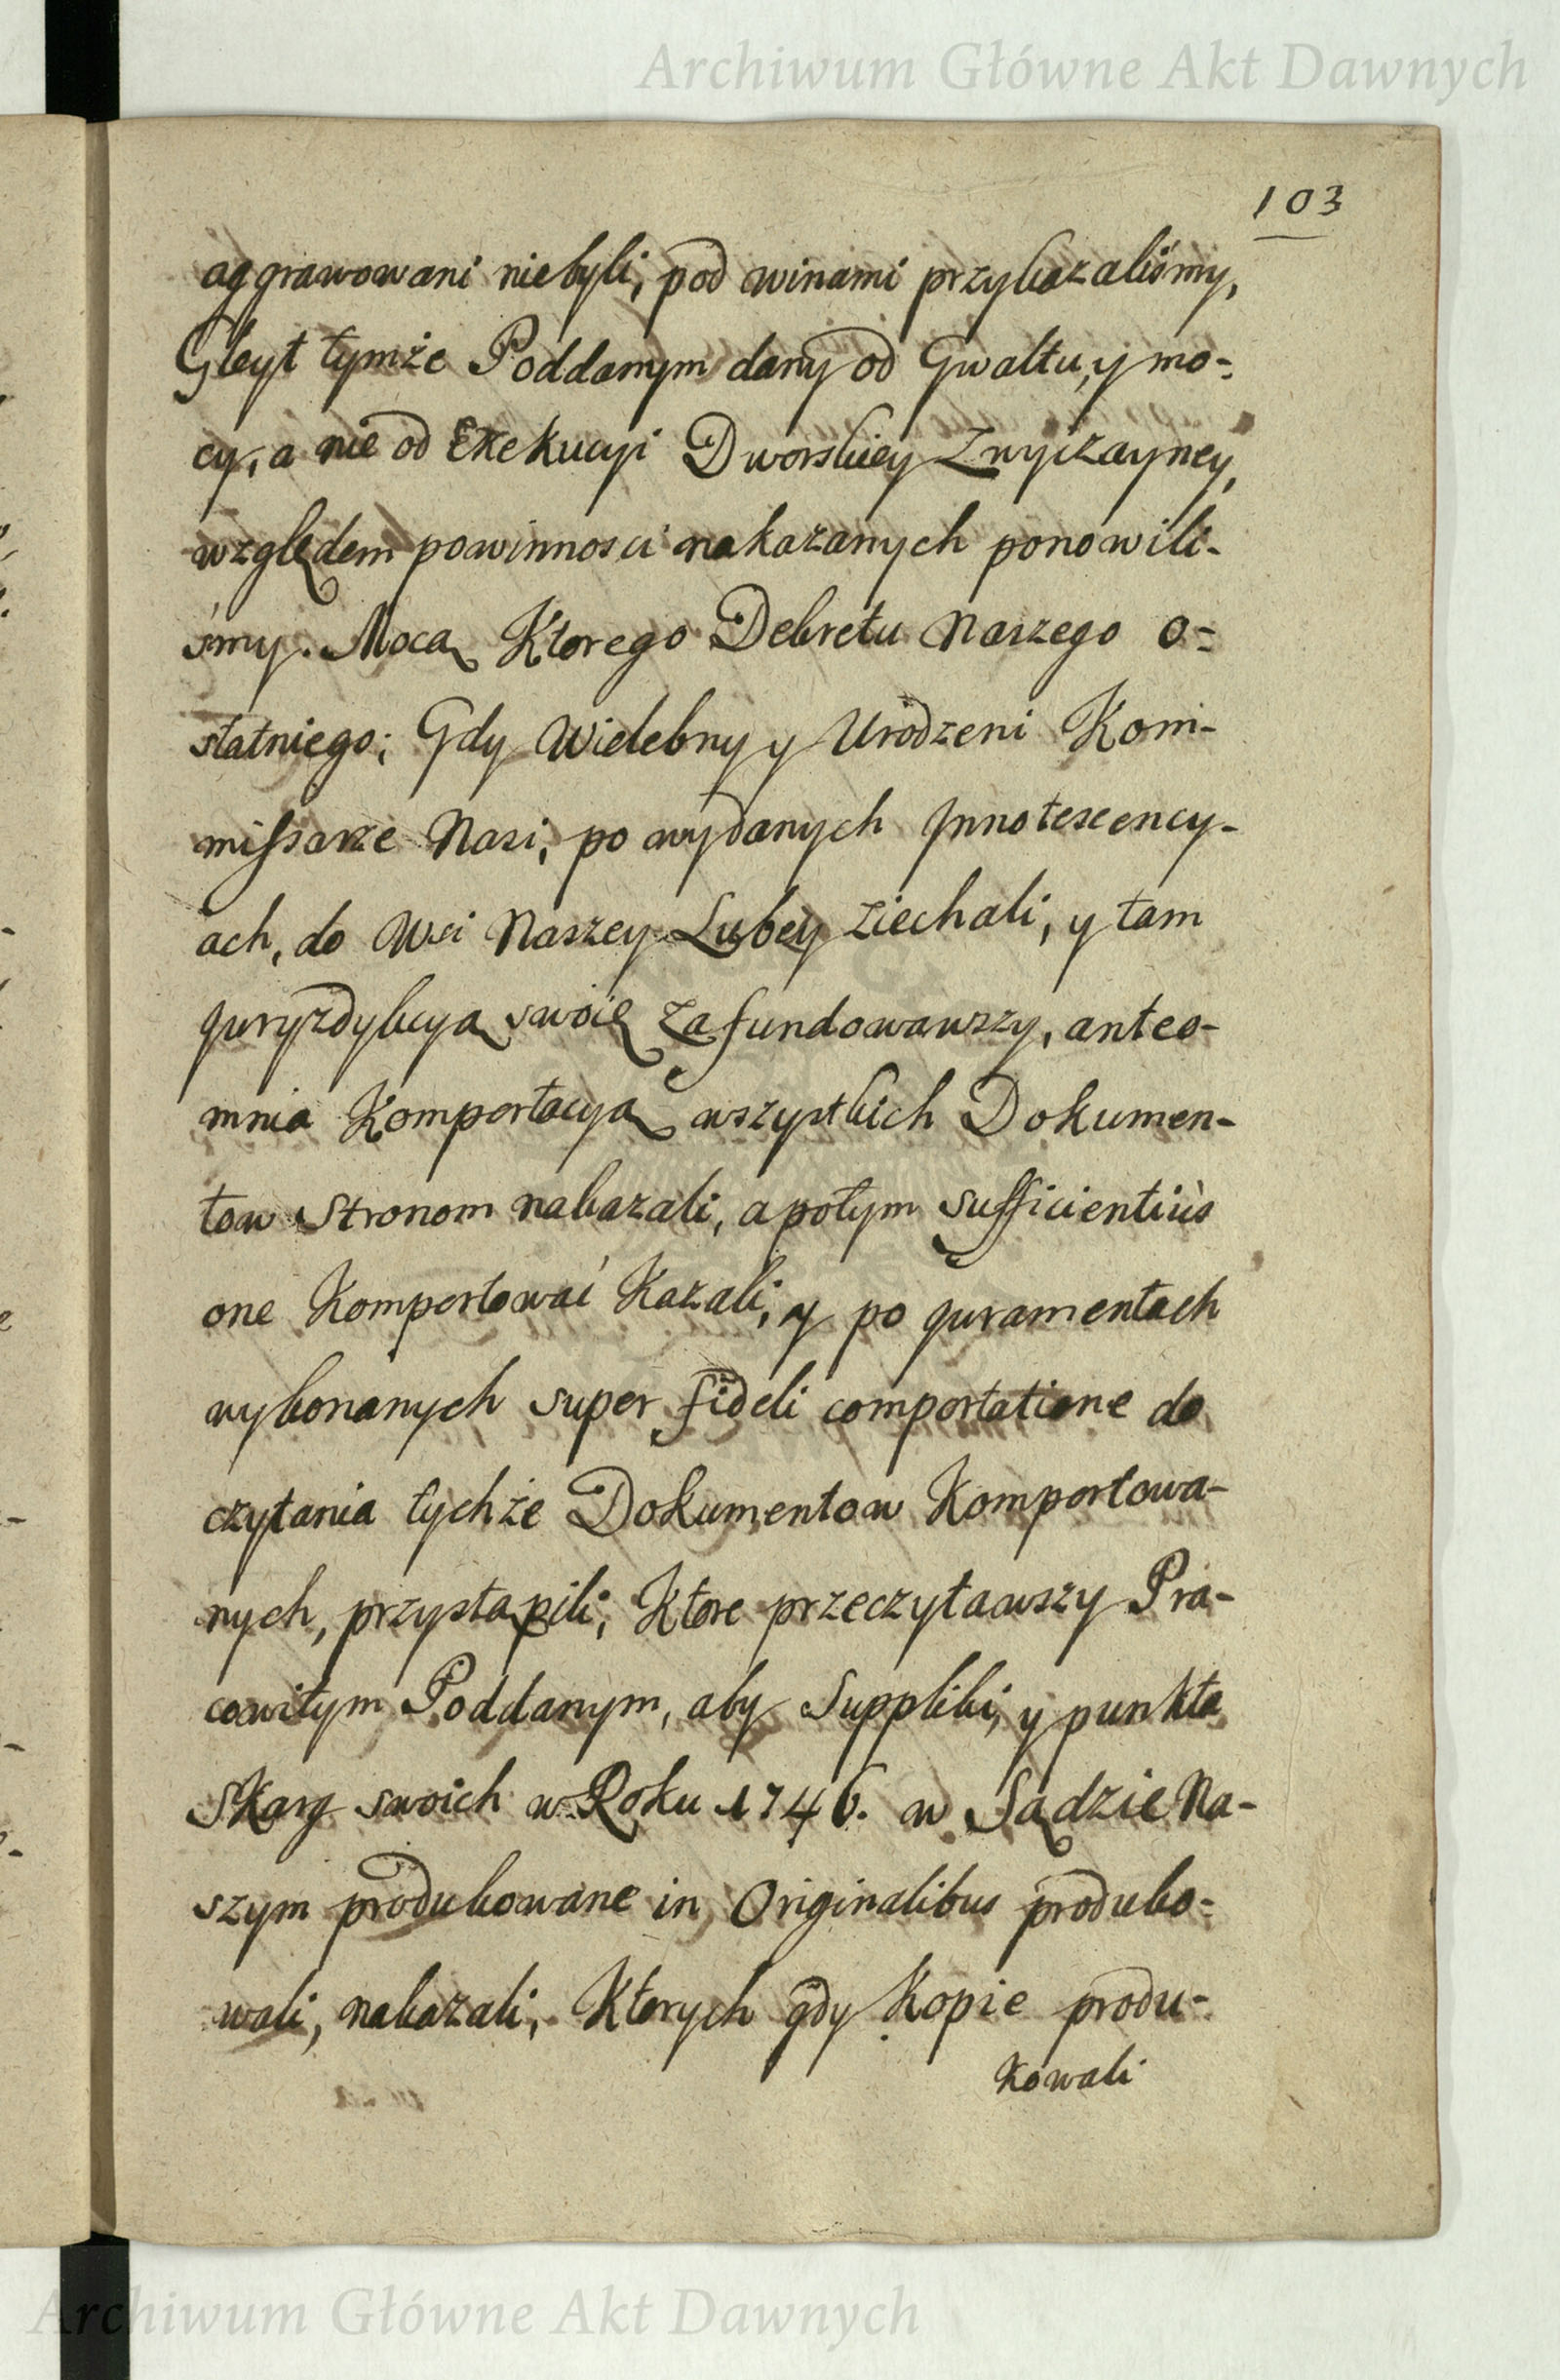 Archiwum Główne Akt Dawnych
103
aggrawowani niebyli, pod winami przykazaliśmy,
Gleyt tymże Poddanym dany od Gwałtu, y mo-
cy, a nie od Exekucyi Dworskiey Zwyczayney,
względem powinnosci nakazanych ponowili-
śmy. Mocą Ktorego Dekretu Naszego o-
statniego; Gdy Wielebny y Urodzeni Kom-
missarze Nasi, po wydanych Innotescency-
ach, do Wsi Naszey Lubey ziechali, y tam
Juryzdykcyą swoię zafundowawszy, anteo-
mnia Komportacyą wszystkich Dokumen-
tow Stronom nakazali, a potym sufficientiùs
one Komportować Kazali, y po Juramentach
wykonanych super fideli comportatione do
czytania tychże Dokumentow Komportowa-
nych, przystąpili; Ktore przeczytawszy Pra-
cowitym Poddanym, aby Suppliki, y punkta
Skarg swoich w Roku 1746. w Sądzie Na-
szym produkowane in Originalibus produko-
wali, nakazali, Ktorych gdy Kopie produ-
kowali
Archiwum Główne Akt Dawnych